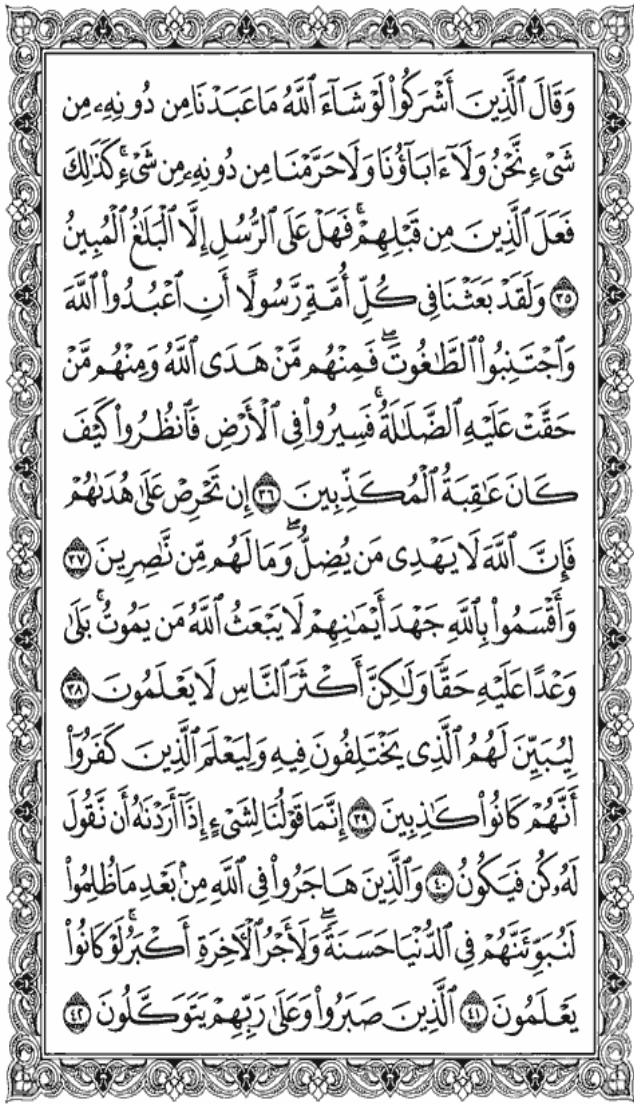 وَقَالَ ٱلَّذِينَ أَشْرَكُوا۟ لَوْ شَآءَ ٱللَّهُ مَا عَبَدْنَا مِن دُونِهِۦ مِن
شَىْءٍ نَّحْنُ وَلَآ ءَابَآؤُنَا وَلَا حَرَّمْنَا مِن دُونِهِۦ مِن شَىْءٍ ۚ كَذَٰلِكَ
فَعَلَ ٱلَّذِينَ مِن قَبْلِهِمْ ۚ فَهَلْ عَلَى ٱلرُّسُلِ إِلَّا ٱلْبَلَٰغُ ٱلْمُبِينُ
٣٥ وَلَقَدْ بَعَثْنَا فِى كُلِّ أُمَّةٍ رَّسُولًا أَنِ ٱعْبُدُوا۟ ٱللَّهَ
وَٱجْتَنِبُوا۟ ٱلطَّٰغُوتَ ۖ فَمِنْهُم مَّنْ هَدَى ٱللَّهُ وَمِنْهُم مَّنْ
حَقَّتْ عَلَيْهِ ٱلضَّلَٰلَةُ ۚ فَسِيرُوا۟ فِى ٱلْأَرْضِ فَٱنظُرُوا۟ كَيْفَ
كَانَ عَٰقِبَةُ ٱلْمُكَذِّبِينَ ٣٦ إِن تَحْرِصْ عَلَىٰ هُدَىٰهُمْ
فَإِنَّ ٱللَّهَ لَا يَهْدِى مَن يُضِلُّ ۖ وَمَا لَهُم مِّن نَّٰصِرِينَ ٣٧
وَأَقْسَمُوا۟ بِٱللَّهِ جَهْدَ أَيْمَٰنِهِمْ لَا يَبْعَثُ ٱللَّهُ مَن يَمُوتُ ۚ بَلَىٰ
وَعْدًا عَلَيْهِ حَقًّا وَلَٰكِنَّ أَكْثَرَ ٱلنَّاسِ لَا يَعْلَمُونَ ٣٨
لِيُبَيِّنَ لَهُمُ ٱلَّذِى يَخْتَلِفُونَ فِيهِ وَلِيَعْلَمَ ٱلَّذِينَ كَفَرُوٓا۟
أَنَّهُمْ كَانُوا۟ كَٰذِبِينَ ٣٩ إِنَّمَا قَوْلُنَا لِشَىْءٍ إِذَآ أَرَدْنَٰهُ أَن نَّقُولَ
لَهُۥ كُن فَيَكُونُ ٤٠ وَٱلَّذِينَ هَاجَرُوا۟ فِى ٱللَّهِ مِنۢ بَعْدِ مَا ظُلِمُوا۟
لَنُبَوِّئَنَّهُمْ فِى ٱلدُّنْيَا حَسَنَةً ۖ وَلَأَجْرُ ٱلْءَاخِرَةِ أَكْبَرُ ۚ لَوْ كَانُوا۟
يَعْلَمُونَ ٤١ ٱلَّذِينَ صَبَرُوا۟ وَعَلَىٰ رَبِّهِمْ يَتَوَكَّلُونَ ٤٢